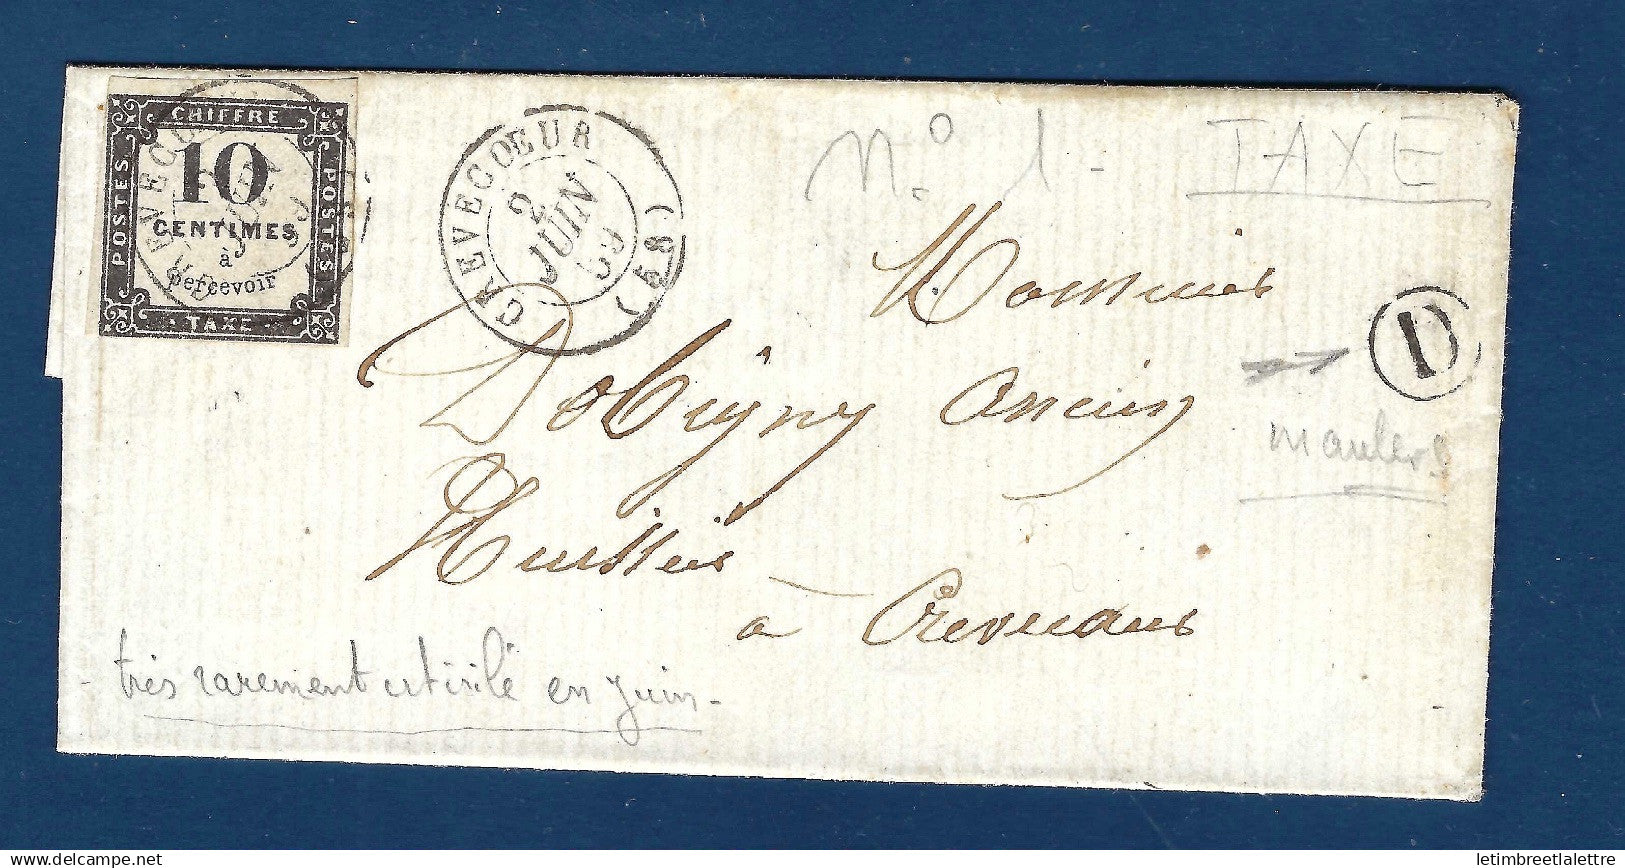 CHIFFRE
POSTES
10
CENTIMES
à
percevoir
POSTES
TAXE
CREVECŒUR
2
JUIN
59
(58)
n° 1 - TAXE
Monsieur
Dobigny Ancien
Huissier
à Crevecœur
D
très rarement utilisé en juin -
letimbreetlalettre
www.delcampe.net